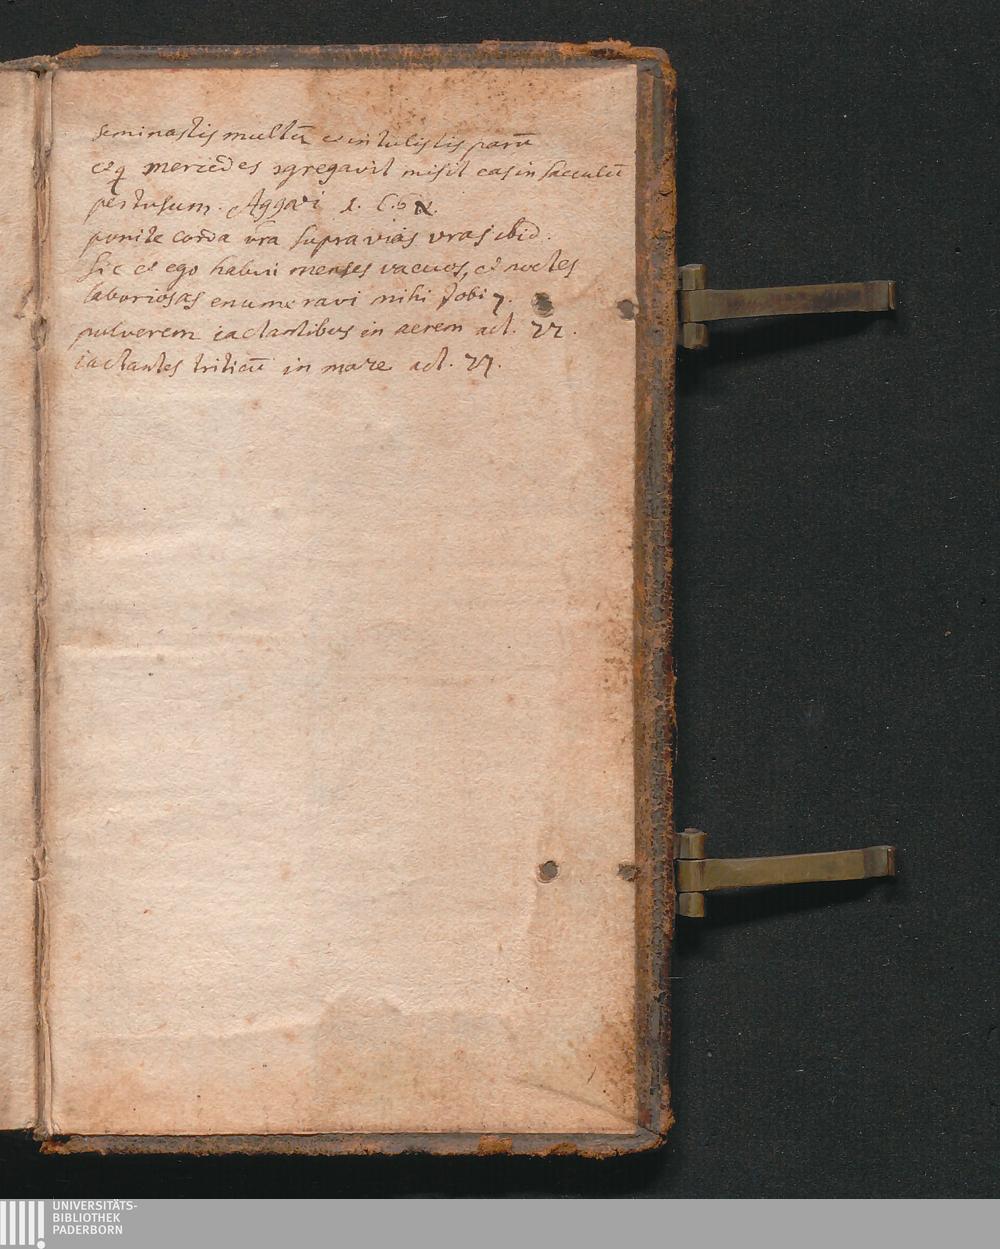 seminastis multū et intulistis parū
et q̄ mercēdes ɔgregavit misit eas in sacculū
pertusum. Aggæi 1. 6
ponite corda vr̄a supra vias vras ibid.
sic et ego habui menses vacuos, et noctes
laboriosas enumeravi mihi Jobi 7.
pulverem iactantibus in aerem act. 22.
iactantes triticū in mare act. 27.
UNIVERSITÄTS-
BIBLIOTHEK
PADERBORN